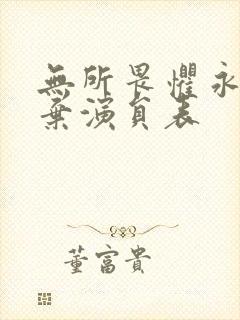 無所畏懼永
棄演員表
董富貴